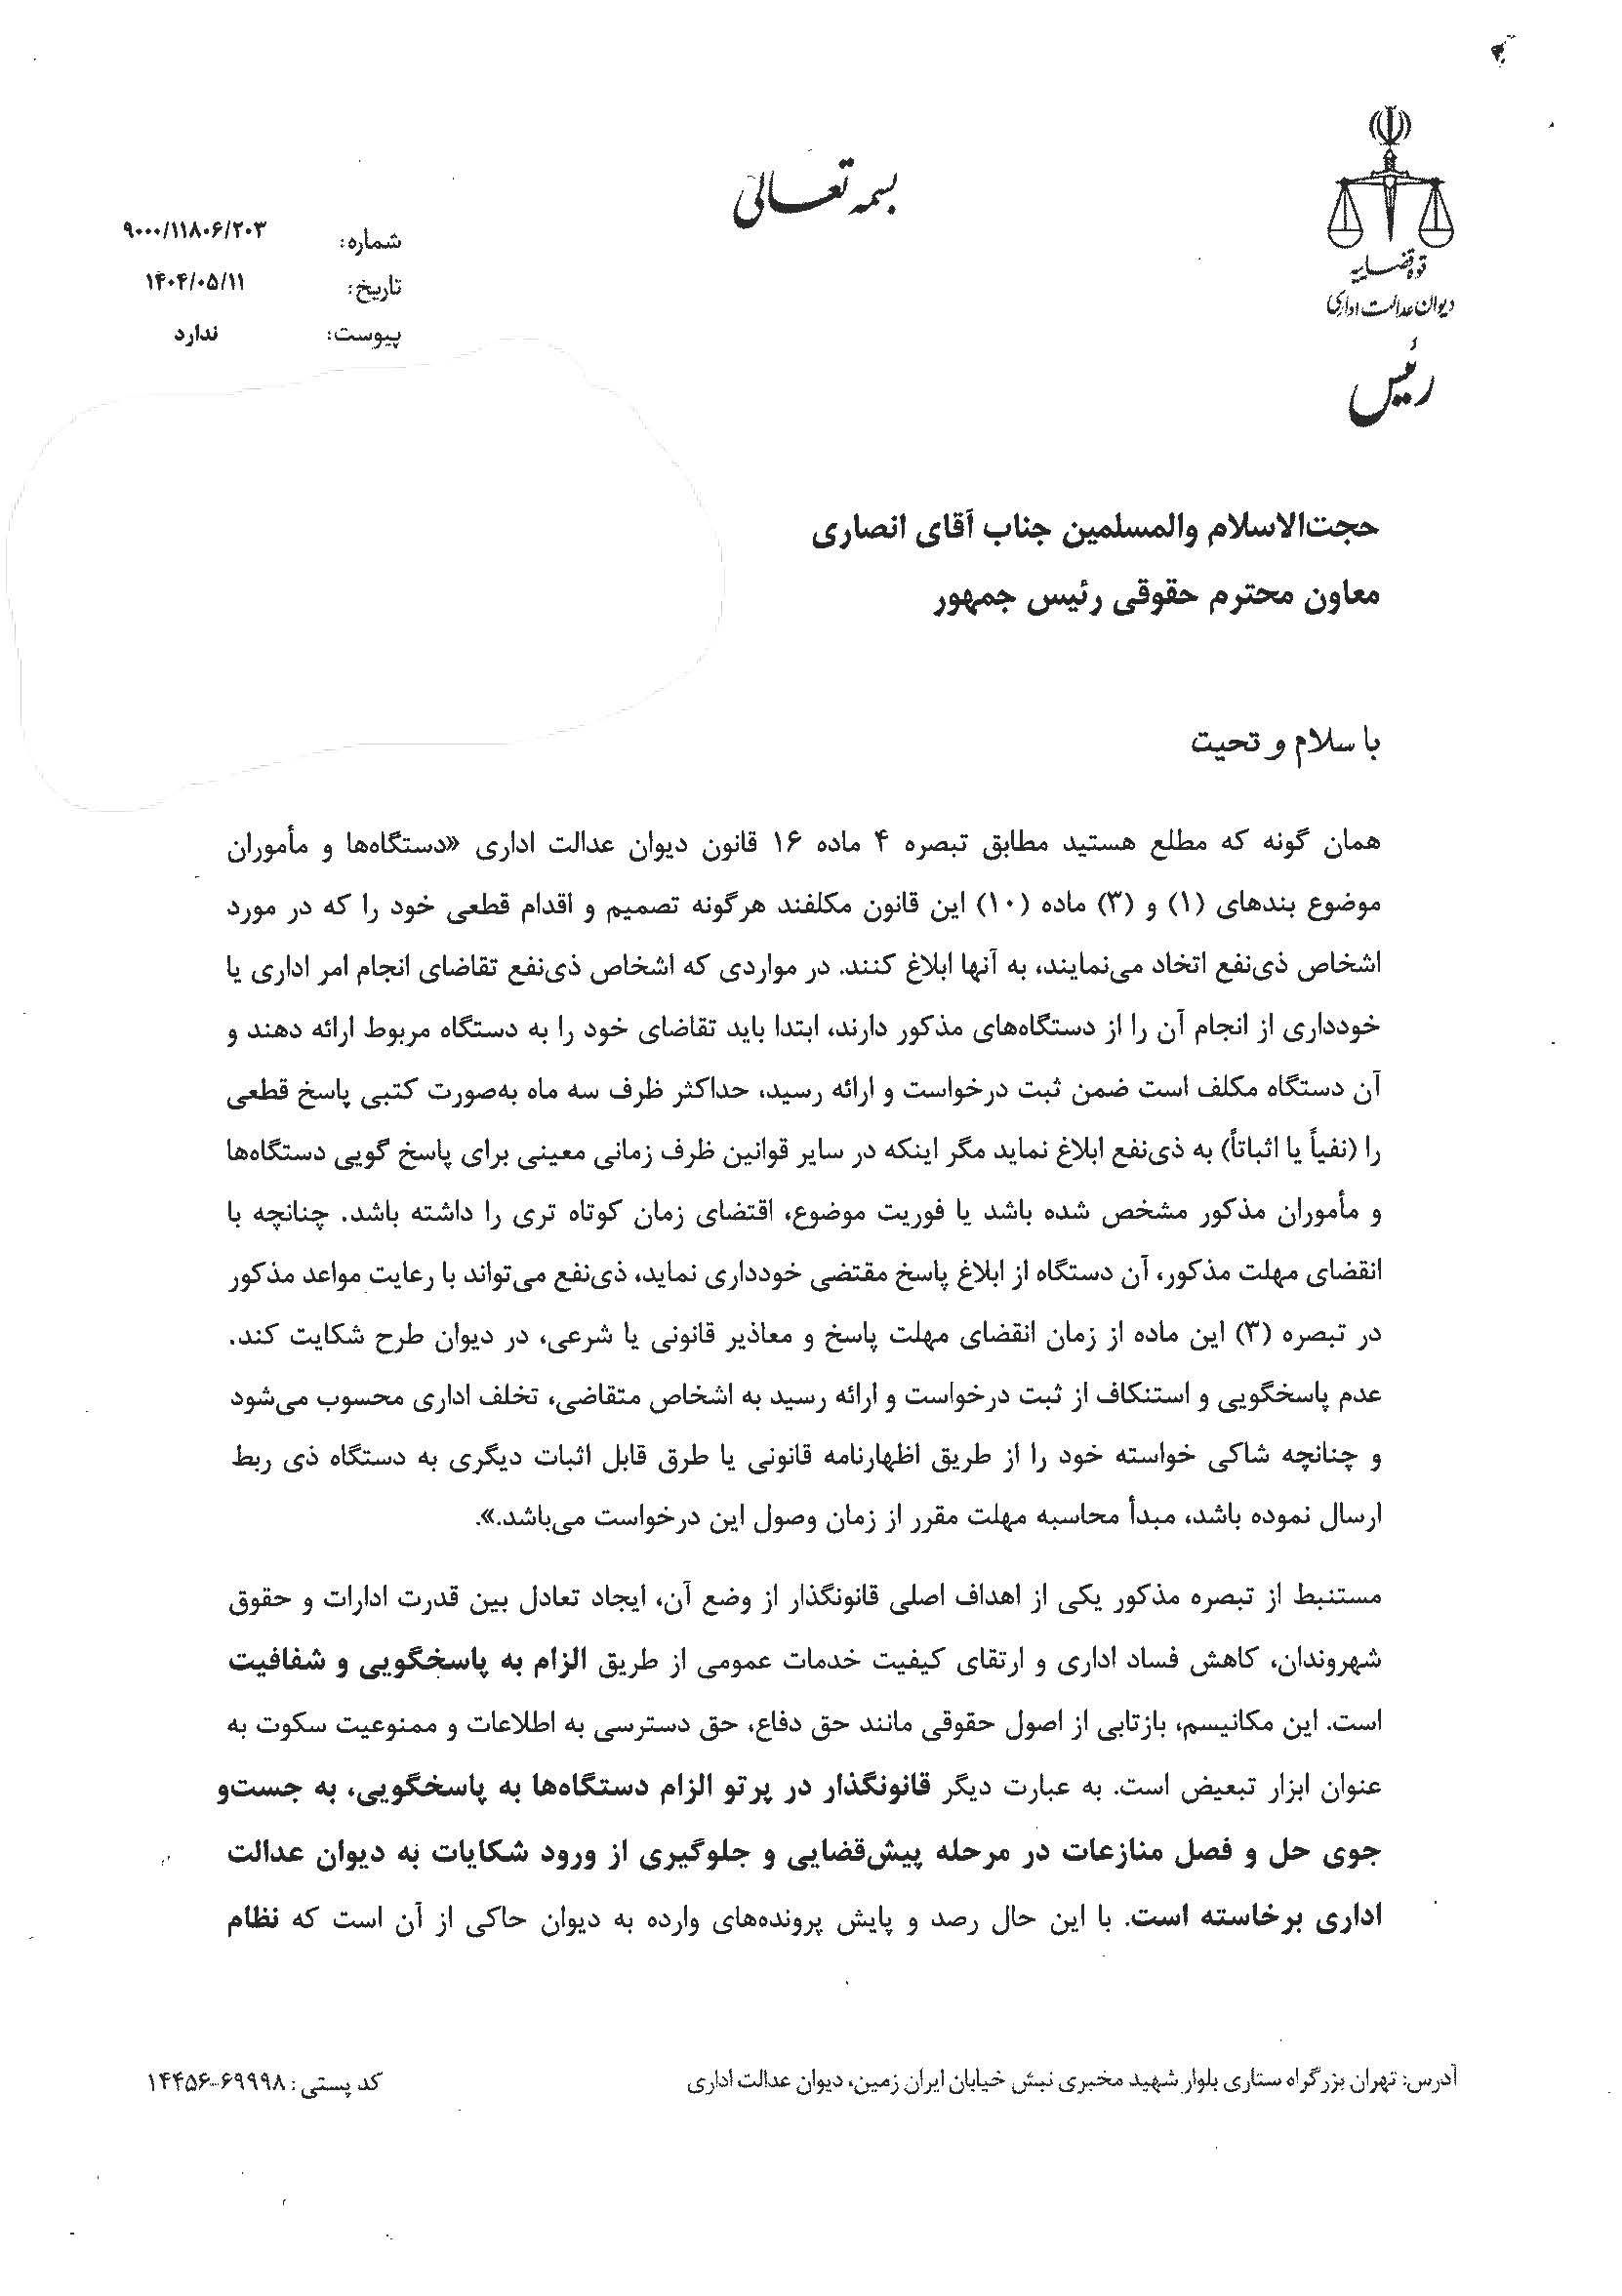 بسمه تعالی
قوه قضاییه
دیوان عدالت اداری
رئیس
شماره: ۹۰۰۰/۱۱۸۰۶/۲۰۳
تاریخ: ۱۴۰۴/۰۵/۱۱
پیوست: ندارد
حجت‌الاسلام والمسلمین جناب آقای انصاری
معاون محترم حقوقی رئیس جمهور
با سلام و تحیت
همان گونه که مطلع هستید مطابق تبصره ۴ ماده ۱۶ قانون دیوان عدالت اداری «دستگاه‌ها و مأموران
موضوع بندهای (۱) و (۳) ماده (۱۰) این قانون مکلفند هرگونه تصمیم و اقدام قطعی خود را که در مورد
اشخاص ذی‌نفع اتخاد می‌نمایند، به آنها ابلاغ کنند. در مواردی که اشخاص ذی‌نفع تقاضای انجام امر اداری یا
خودداری از انجام آن را از دستگاه‌های مذکور دارند، ابتدا باید تقاضای خود را به دستگاه مربوط ارائه دهند و
آن دستگاه مکلف است ضمن ثبت درخواست و ارائه رسید، حداکثر ظرف سه ماه به‌صورت کتبی پاسخ قطعی
را (نفیاً یا اثباتاً) به ذی‌نفع ابلاغ نماید مگر اینکه در سایر قوانین ظرف زمانی معینی برای پاسخ گویی دستگاه‌ها
و مأموران مذکور مشخص شده باشد یا فوریت موضوع، اقتضای زمان کوتاه تری را داشته باشد. چنانچه با
انقضای مهلت مذکور، آن دستگاه از ابلاغ پاسخ مقتضی خودداری نماید، ذی‌نفع می‌تواند با رعایت مواعد مذکور
در تبصره (۳) این ماده از زمان انقضای مهلت پاسخ و معاذیر قانونی یا شرعی، در دیوان طرح شکایت کند.
عدم پاسخگویی و استنکاف از ثبت درخواست و ارائه رسید به اشخاص متقاضی، تخلف اداری محسوب می‌شود
و چنانچه شاکی خواسته خود را از طریق اظهارنامه قانونی یا طرق قابل اثبات دیگری به دستگاه ذی ربط
ارسال نموده باشد، مبدأ محاسبه مهلت مقرر از زمان وصول این درخواست می‌باشد.».
مستنبط از تبصره مذکور یکی از اهداف اصلی قانونگذار از وضع آن، ایجاد تعادل بین قدرت ادارات و حقوق
شهروندان، کاهش فساد اداری و ارتقای کیفیت خدمات عمومی از طریق الزام به پاسخگویی و شفافیت
است. این مکانیسم، بازتابی از اصول حقوقی مانند حق دفاع، حق دسترسی به اطلاعات و ممنوعیت سکوت به
عنوان ابزار تبعیض است. به عبارت دیگر قانونگذار در پرتو الزام دستگاه‌ها به پاسخگویی، به جست‌و
جوی حل و فصل منازعات در مرحله پیش‌قضایی و جلوگیری از ورود شکایات به دیوان عدالت
اداری برخاسته است. با این حال رصد و پایش پرونده‌های وارده به دیوان حاکی از آن است که نظام
آدرس: تهران بزرگراه ستاری بلوار شهید مخبری نبش خیابان ایران زمین، دیوان عدالت اداری
کد پستی: ۶۹۹۹۸-۱۴۴۵۶